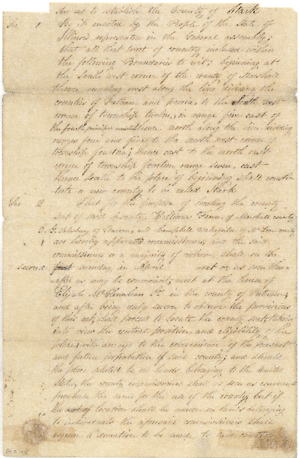 An act to establish the County of Stark
Sec 1 Be it enacted by the People of the State of
Illinois represented in the General assembly;
that all that tract of country inclosed within
the following Boundaries to wit: beginning at
the South west corner of the county of Marshall
thence running west along the line dividing the
counties of Putnam and Peoria to the
corner of township twelve, in range five east of
the fourth principal meridian thence north along the line dividing
ranges four and five to the north west corner
township fourteen; thence east to the north east
corner of township fourteen range seven, east
thence South to the place of beginning shall consti-
tute a new county to be called Stark
Sec 2 That for the purpose of locating the county
seat of said county, William of Marshall county
are hereby appointed commissioners, and the said
commissioners or a majority of them, shall on the
second monday in April next or as soon there-
after as may be convenient, meet at the house of
Elijah McClenahan Sr. in the county of Putnam,
and after being duly sworn to
of this act, shall proceed to locate the county seat, taking
into view the
place, with an eye to the convenience of the present
and future population of said county; and should
the place selected be on lands belonging to the United
States, the county commissioners shall as soon as convenient
purchase the same for the use of the county, but if
the location should be made on lands belonging
to individuals the aforesaid commissioners shall
require a donation to be made to said county